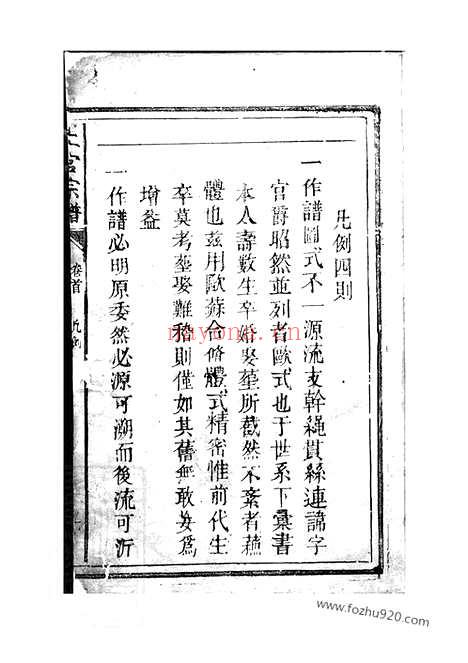 凡例四則
一作譜圖式不一源流支幹繩貫絲連諱字
官爵昭然並列者歐式也于世系下彙書
本人壽數生卒婚娶塟所截然不紊者蘓
體也兹用歐蘇合脩體式精密惟前代生
卒莫考塟娶難稽則僅如其舊無敢妄爲
增益
一作譜必明原委然必源可溯而後流可沂
上官宗譜
卷首
凡例
nayona.cn
www.fozhu920.com